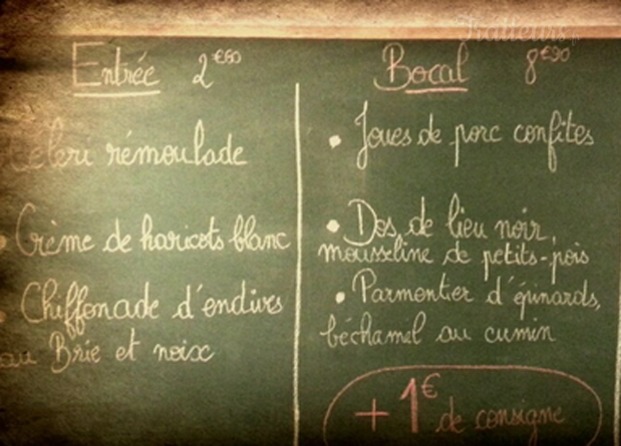 Traiteurs.fr
Entrée 2€60
Celeri rémoulade
Crème de haricots blanc
Chiffonade d'endives
au Brie et noix
Bocal 8€90
• Joues de porc confites
• Dos de lieu noir,
mousseline de petits-pois
• Parmentier d'épinards,
béchamel au cumin
+ 1€ de consigne